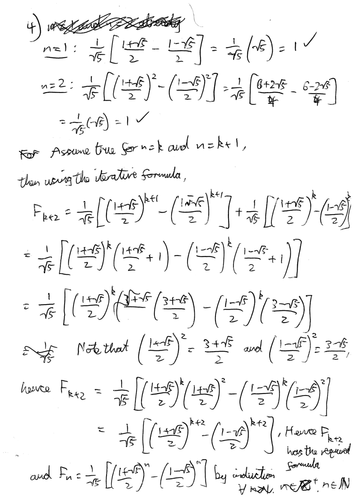 4)
n=1: 1/√5 [ (1+√5)/2 - (1-√5)/2 ] = 1/√5 (√5) = 1 ✓
n=2: 1/√5 [ ((1+√5)/2)^2 - ((1-√5)/2)^2 ] = 1/√5 [ (6+2√5)/4 - (6-2√5)/4 ]
= 1/√5 (√5) = 1 ✓
Assume true for n=k and n=k+1,
then using the iterative formula,
F_{k+2} = 1/√5 [ ((1+√5)/2)^{k+1} - ((1-√5)/2)^{k+1} ] + 1/√5 [ ((1+√5)/2)^k - ((1-√5)/2)^k ]
= 1/√5 [ ((1+√5)/2)^k ((1+√5)/2 + 1) - ((1-√5)/2)^k ((1-√5)/2 + 1) ]
= 1/√5 [ ((1+√5)/2)^k ((3+√5)/2) - ((1-√5)/2)^k ((3-√5)/2) ]
Note that ((1+√5)/2)^2 = (3+√5)/2 and ((1-√5)/2)^2 = (3-√5)/2,
hence F_{k+2} = 1/√5 [ ((1+√5)/2)^k ((1+√5)/2)^2 - ((1-√5)/2)^k ((1-√5)/2)^2 ]
= 1/√5 [ ((1+√5)/2)^{k+2} - ((1-√5)/2)^{k+2} ], Hence F_{k+2}
has the required
formula
and F_n = 1/√5 [ ((1+√5)/2)^n - ((1-√5)/2)^n ] by induction
∀ n∈Z^+, n∈N